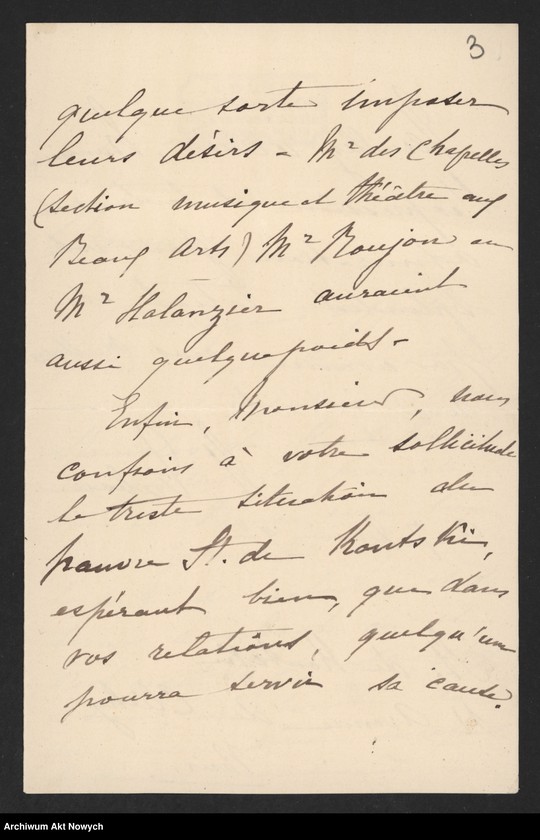 3
quelque sorte imposer
leurs désirs - Mr des Chapelles
(section musique et théâtre aux
Beaux Arts) Mr Roujon ou
Mr Halanzier auraient
aussi quelque poids -
Enfin, Monsieur, nous
confions à votre sollicitude
la triste situation du
pauvre St. de Kontski,
espérant bien, que dans
vos relations, quelqu'un
pourra servir sa cause.
Archiwum Akt Nowych